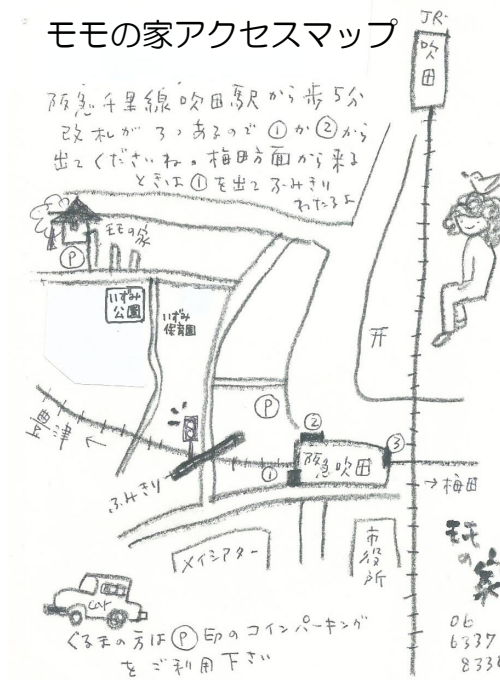 モモの家アクセスマップ
JR
吹田
阪急千里線吹田駅から歩5分
改札が3つあるので①か②から
出てくださいね。梅田方面から来る
ときは①を出てふみきり
わたるよ
モモの家
P
いずみ
公園
いずみ
保育園
开
P
②
③
阪急吹田
①
豊津
←
→梅田
ふみきり
メイシアター
市役所
モモの家
car
くるまの方はⓅ印のコインパーキング
をご利用下さい
06
6337
8330